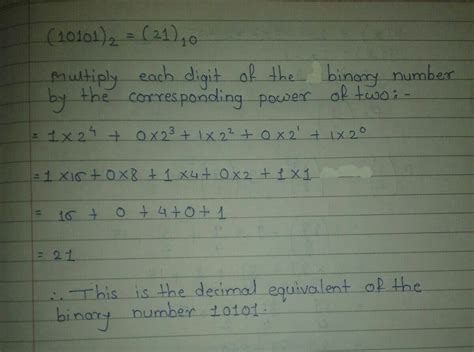 (10101)₂ = (21)₁₀
Multiply each digit of the binary number
by the corresponding power of two:-
= 1×2⁴ + 0×2³ + 1×2² + 0×2¹ + 1×2⁰
= 1×16 + 0×8 + 1×4 + 0×2 + 1×1
= 16 + 0 + 4 + 0 + 1
= 21
∴ This is the decimal equivalent of the
binary number 10101.